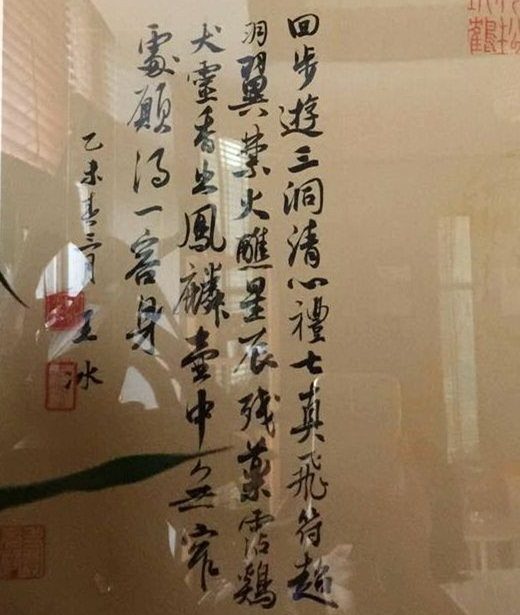 回步遊三洞清心禮七真飛符超
羽翼焚火醮星辰残藥霑鷄
犬靈香出鳳麟壺中無窄
處願得一容身
乙未春三月 王冰